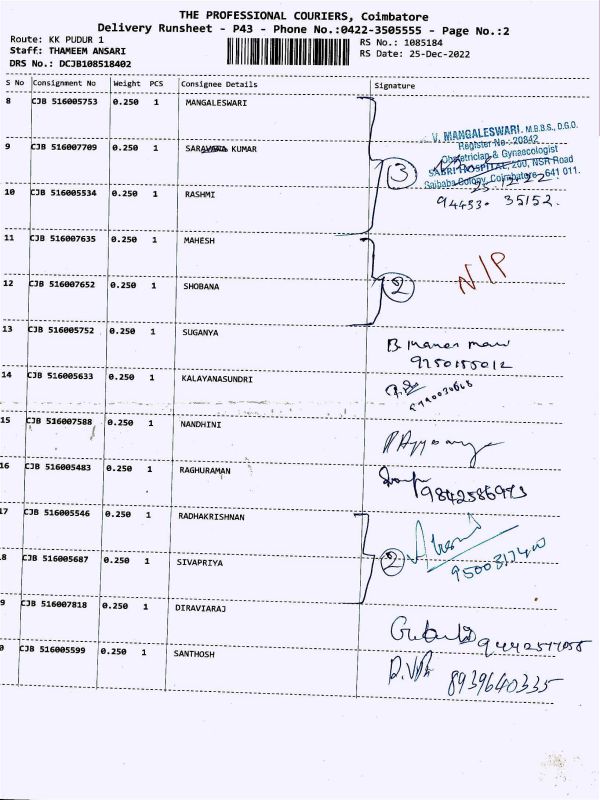 THE PROFESSIONAL COURIERS, Coimbatore
Delivery Runsheet - P43 - Phone No.:0422-3505555 - Page No.:2
Route: KK PUDUR 1
RS No.: 1085184
Staff: THAMEEM ANSARI
RS Date: 25-Dec-2022
DRS No.: DCJB108518402
S No Consignment No Weight PCS Consignee Details Signature
8 CJB 516005753 0.250 1 MANGALESWARI
V. MANGALESWARI. M.B.B.S., D.G.O.
Register No - 20842
Obstetrician & Gynaecologist
SABRI HOSPITAL, 200, NSR Road
Saibaba Colony, Coimbatore - 641 011.
25.12.22
94453. 35152.
9 CJB 516007709 0.250 1 SARAVANA KUMAR
3
10 CJB 516005534 0.250 1 RASHMI
11 CJB 516007635 0.250 1 MAHESH
N/P
12 CJB 516007652 0.250 1 SHOBANA
2
13 CJB 516005752 0.250 1 SUGANYA
9750155012
14 CJB 516005633 0.250 1 KALAYANASUNDRI
15 CJB 516007588 0.250 1 NANDHINI
16 CJB 516005483 0.250 1 RAGHURAMAN
17 CJB 516005546 0.250 1 RADHAKRISHNAN
8 CJB 516005687 0.250 1 SIVAPRIYA
2
9 CJB 516007818 0.250 1 DIRAVIARAJ
0 CJB 516005599 0.250 1 SANTHOSH
8939640335